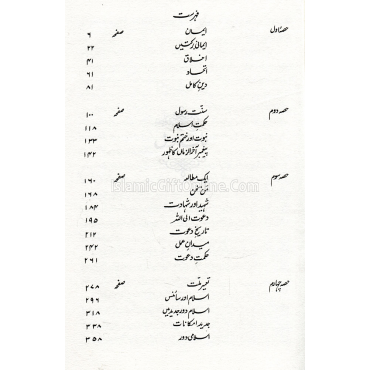 فہرست
حصہ اول ایمان صفحہ ۶
ایمانی برکتیں ۲۲
اخلاق ۴۱
اتحاد ۶۱
دین کامل ۸۱
حصہ دوم سنّت رسول صفحہ ۱۰۰
حکمت اسلام ۱۱۸
نبوت اور ختم نبوت ۱۳۳
پیغمبر آخر الزماں کا ظہور ۱۴۲
حصہ سوم ایک مطالعہ صفحہ ۱۶۰
۱۶۸
شہید اور شہادت ۱۸۴
دعوت الی اللہ ۱۹۵
تاریخ دعوت ۲۱۲
میدان عمل ۲۴۲
حکمت دعوت ۲۶۱
حصہ چہارم تعمیر ملّت صفحہ ۲۷۸
اسلام اور سائنس ۲۹۶
اسلام دور جدید میں ۳۱۸
جدید امکانات ۳۳۸
اسلامی دور ۳۵۸
IslamicGiftOnline.Com